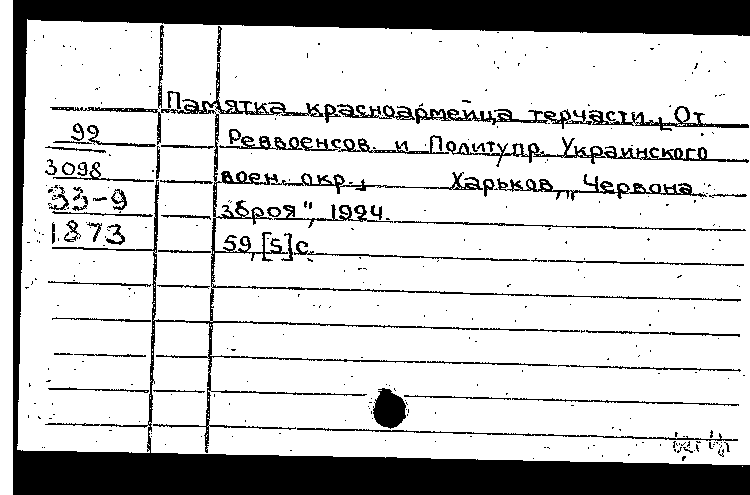 Памятка красноармейца терчасти. [От
99
Реввоенсов. и Политупр. Украинского
3098
воен. окр.]
Харьков, „Червона
33-9
зброя", 1924.
1873
59, [5] с.